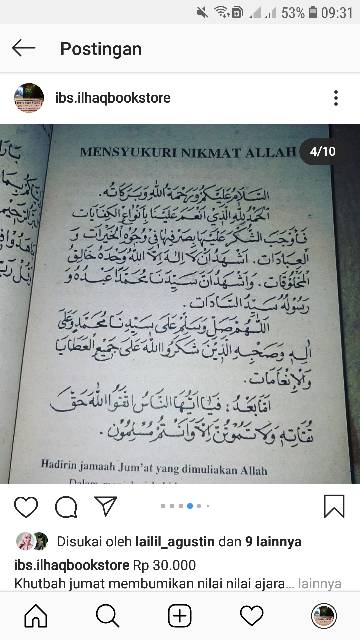 53% 09:31
Postingan
ibs.ilhaqbookstore
4/10
MENSYUKURI NIKMAT ALLAH
السَّلَامُ عَلَيْكُمْ وَرَحْمَةُ اللهِ وَبَرَكَاتُهُ.
اَلْحَمْدُ لِلّٰهِ الَّذِيْ اَنْعَمَ عَلَيْنَا بِاَنْوَاعِ الْكِفَايَاتِ
فَاَوْجَبَ الشُّكْرَ عَلَيْهَا بِصَرْفِهَا فِيْ وُجُوْهِ الْخَيْرَاتِ وَ
الْعِبَادَاتِ. اَشْهَدُ اَنْ لَا اِلٰهَ اِلَّا اللهُ وَحْدَهُ خَالِقُ
الْمَخْلُوْقَاتِ. وَاَشْهَدُ اَنَّ سَيِّدَنَا مُحَمَّدًا عَبْدُهُ وَ
رَسُوْلُهُ سَيِّدُ السَّادَاتِ.
اَللّٰهُمَّ فَصَلِّ وَسَلِّمْ عَلَى سَيِّدِنَا مُحَمَّدٍ وَعَلَى
اٰلِهِ وَصَحْبِهِ الَّذِيْنَ شَكَرُوا اللهَ عَلَى جَمِيْعِ الْعَطَايَا
وَالْاِنْعَامَاتِ.
اَمَّا بَعْدُ: فَيَا اَيُّهَا النَّاسُ اتَّقُوا اللهَ حَقَّ
تُقَاتِهِ وَلَا تَمُوْتُنَّ اِلَّا وَاَنْتُمْ مُسْلِمُوْنَ.
Hadirin jamaah Jum'at yang dimuliakan Allah
Disukai oleh lailil_agustin dan 9 lainnya
ibs.ilhaqbookstore Rp 30.000
Khutbah jumat membumikan nilai nilai ajara... lainnya